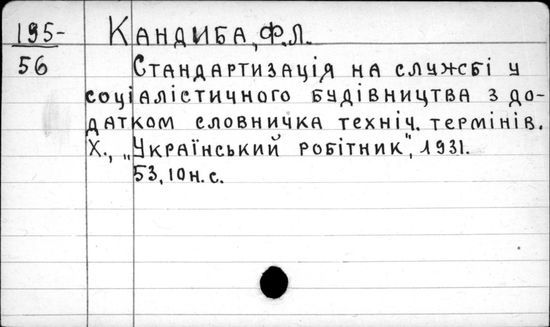 195-
56
Кандиба, Ф.Л.
Стандартизація на службі у
соціалістичного будівництва з до-
датком словничка техніч. термінів.
Х., „Український робітник", 1931.
53, 10 н. с.